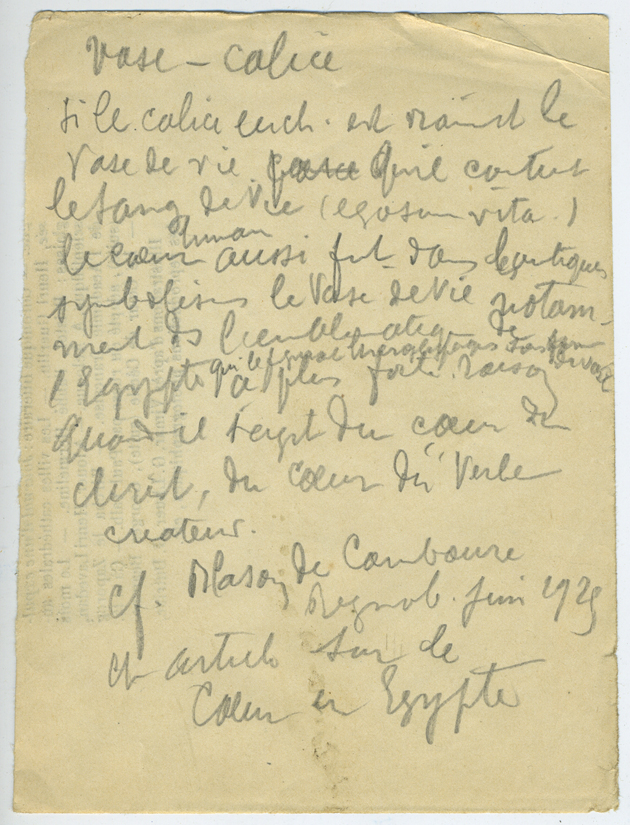 Vase – Calice
Si le calice euch. est vraiment le
Vase de vie parce qu'il contient
le sang de Vie (ego sum vita.)
le cœur humain aussi fut dans les antiques
symbolismes le Vase de Vie notam-
ment ds l'emblématique de
l'Egypte qui le figure hiéroglyphes par un vase
a plus forte raison
Quand il s'agit du cœur du
christ, du cœur du Verbe
créateur.
Cf. Blason de
Regnab. Juin 1925
et article sur le
Cœur en Egypte